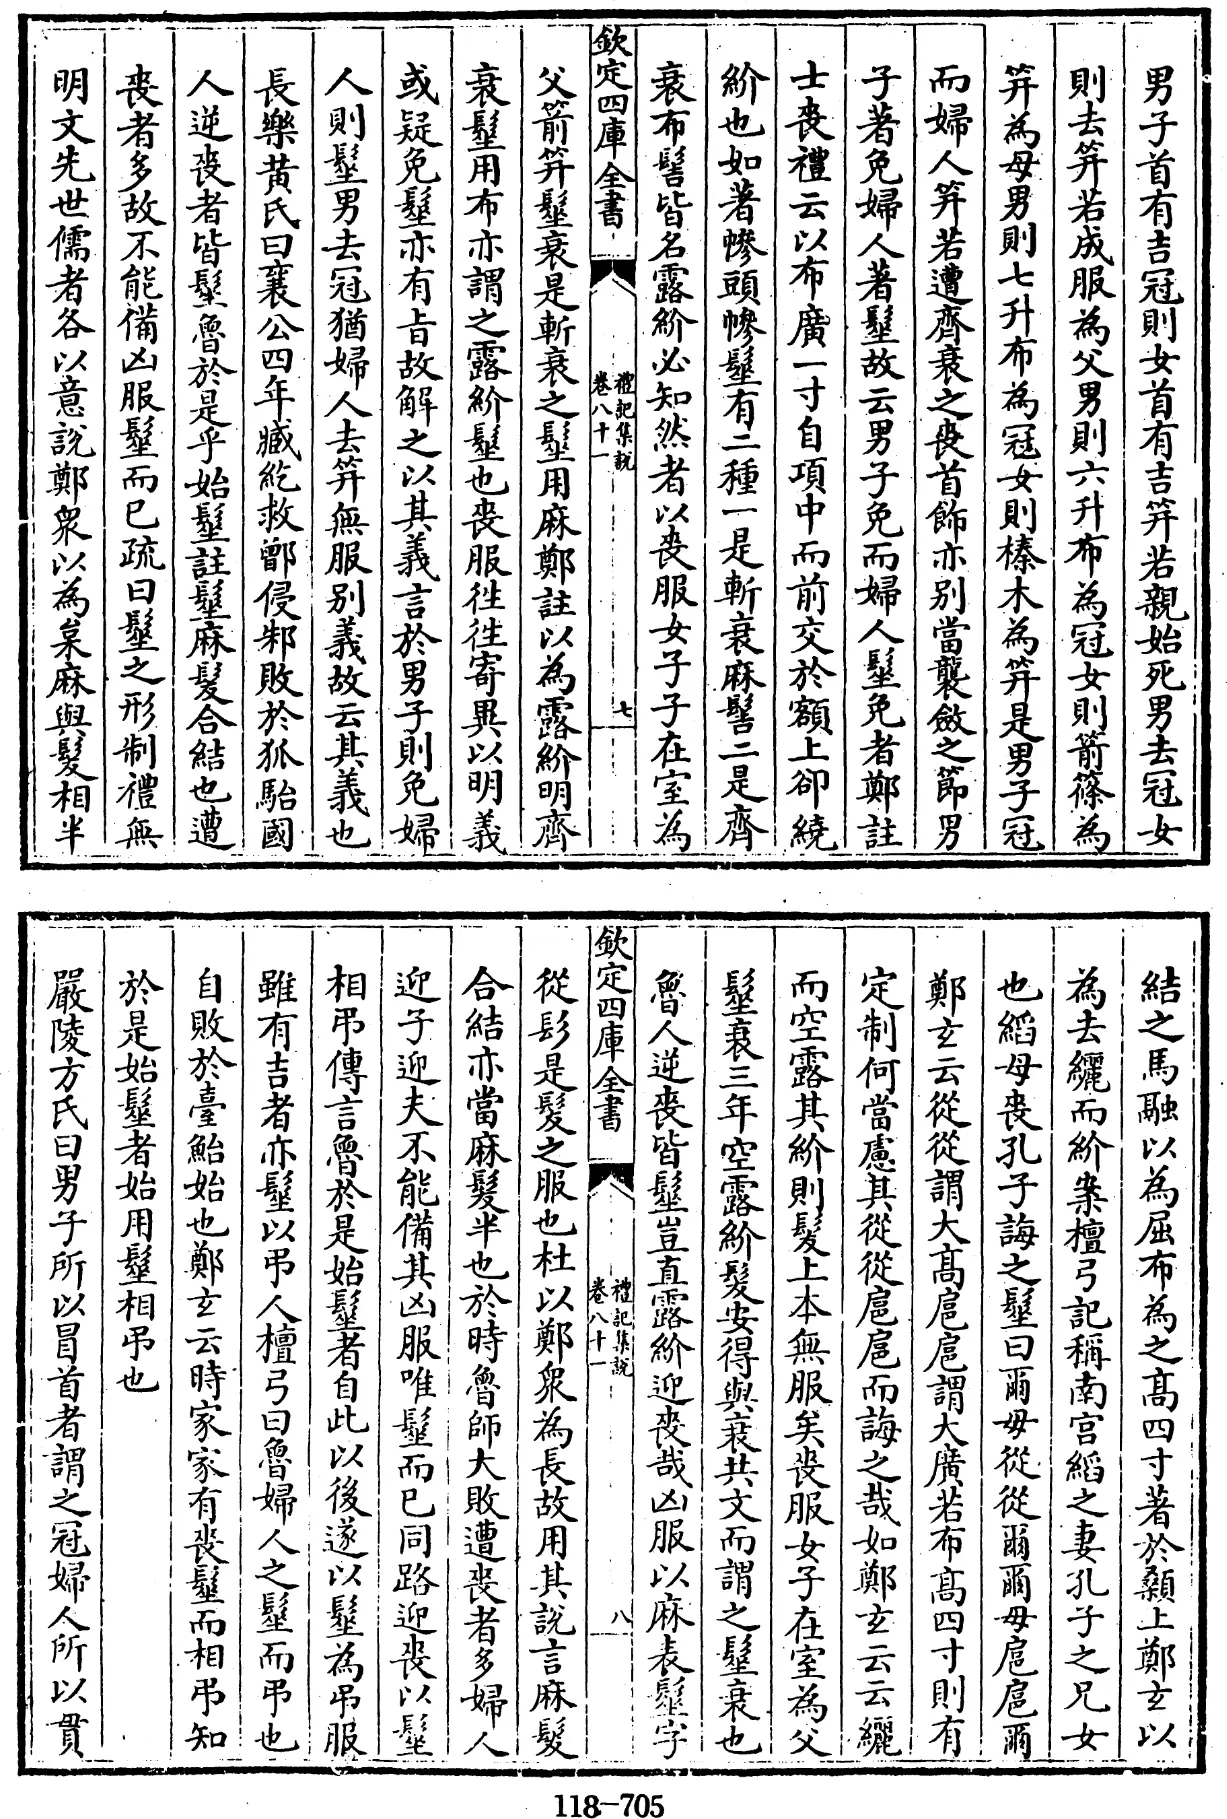 男子首有吉冠則女首有吉笄若親始死男去冠女
則去笄若成服為父男則六升布為冠女則箭篠為
笄為母男則七升布為冠女則榛木為笄是男子冠
而婦人笄若遭齊衰之喪首飾亦别當襲斂之節男
子著免婦人著髽故云男子免而婦人髽免者鄭註
士喪禮云以布廣一寸自項中而前交於額上卻繞
紒也如著幓頭幓髽有二種一是斬衰麻髻二是齊
衰布髻皆名露紒必知然者以喪服女子子在室為
欽定四庫全書
禮記集說
卷八十一
七
父箭笄髽衰是斬衰之髽用麻鄭註以為露紒明齊
衰髽用布亦謂之露紒髽也喪服徃徃寄異以明義
或疑免髽亦有旨故解之以其義言於男子則免婦
人則髽男去冠猶婦人去笄無服别義故云其義也
長樂黄氏曰襄公四年臧紇救鄫侵邾敗於狐駘國
人逆喪者皆髽魯於是乎始髽註髽麻髪合結也遭
喪者多故不能備凶服髽而已疏曰髽之形制禮無
明文先世儒者各以意說鄭衆以為枲麻與髪相半
結之馬融以為屈布為之髙四寸著於顙上鄭玄以
為去纚而紒案檀弓記稱南宫縚之妻孔子之兄女
也縚母喪孔子誨之髽曰爾毋從從爾爾毋扈扈爾
鄭玄云從從謂大髙扈扈謂大廣若布髙四寸則有
定制何當慮其從從扈扈而誨之哉如鄭玄云云纚
而空露其紒則髪上本無服矣喪服女子在室為父
髽衰三年空露紒髪安得與衰共文而謂之髽衰也
魯人逆喪皆髽豈直露紒迎喪哉凶服以麻表髽字
欽定四庫全書
禮記集說
卷八十一
八
從髟是髪之服也杜以鄭衆為長故用其說言麻髪
合結亦當麻髪半也於時魯師大敗遭喪者多婦人
迎子迎夫不能備其凶服唯髽而已同路迎喪以髽
相弔傳言魯於是始髽者自此以後遂以髽為弔服
雖有吉者亦髽以弔人檀弓曰魯婦人之髽而弔也
自敗於臺鮐始也鄭玄云時家家有喪髽而相弔知
於是始髽者始用髽相弔也
嚴陵方氏曰男子所以冒首者謂之冠婦人所以貫
118-705